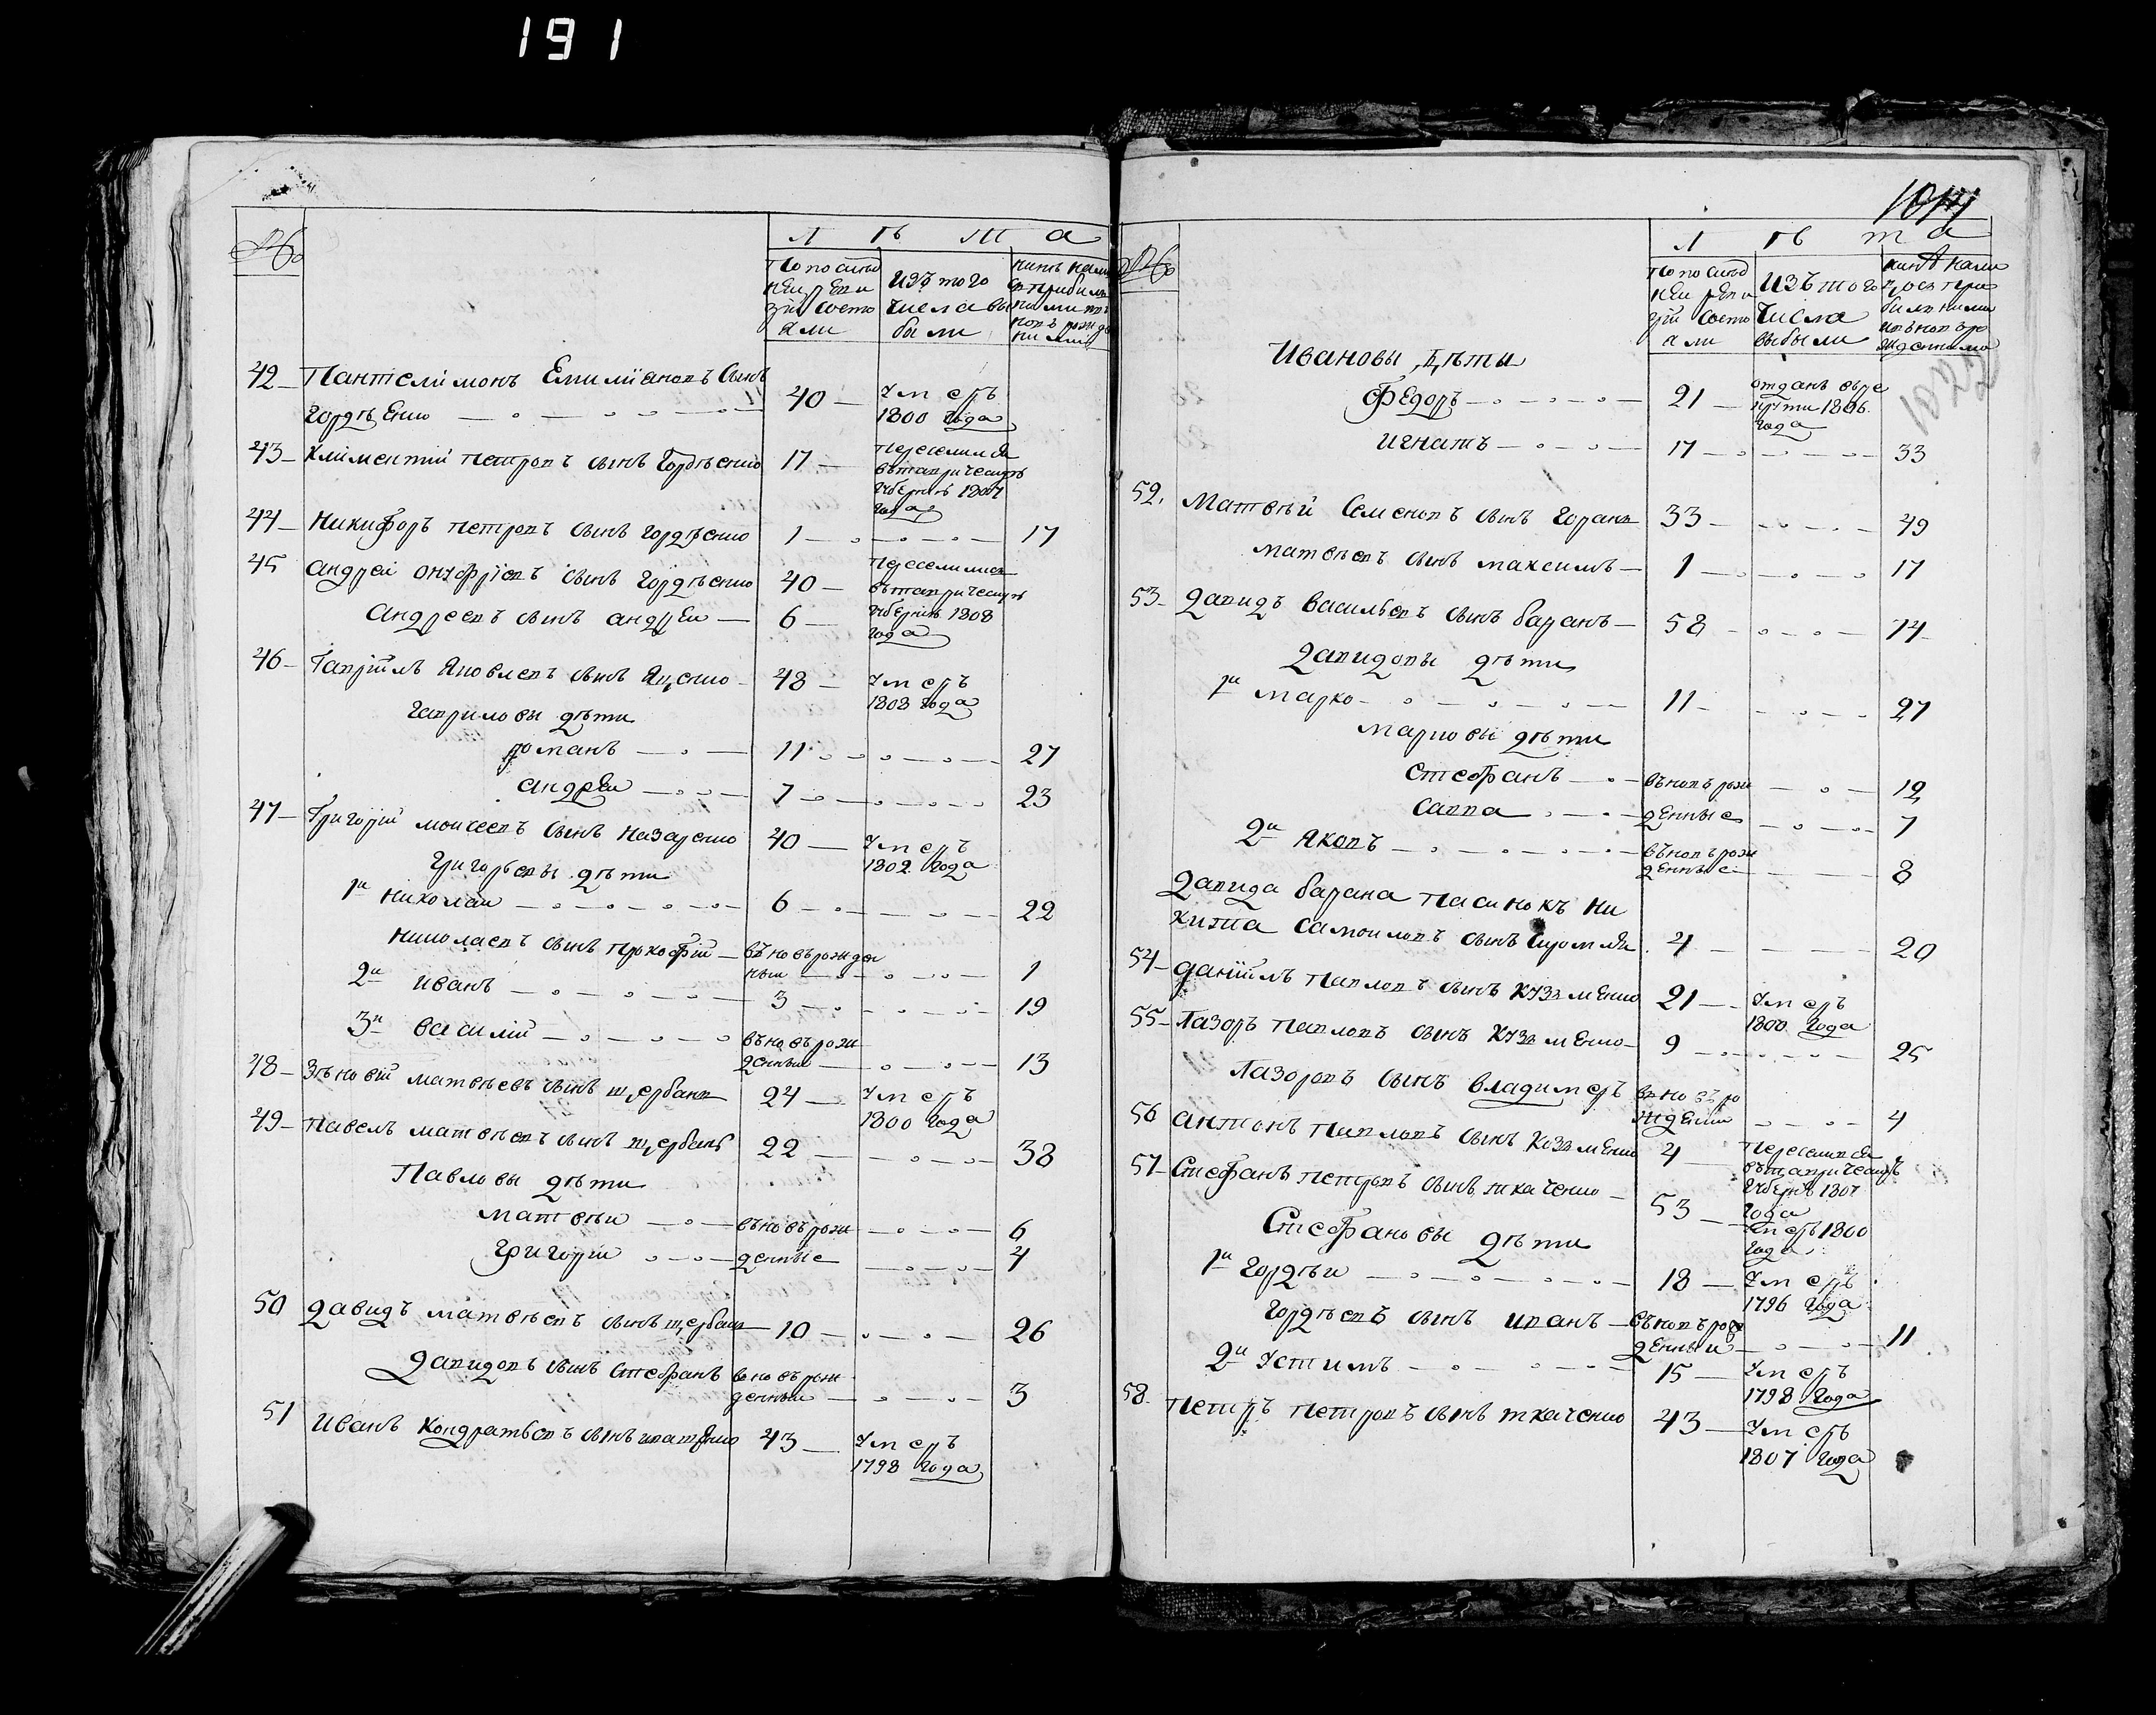 191
№
Лѣта
По послѣд
ней реви
зіи состо
яли
Изъ того
числа вы
были
42 Пантелимонъ Емиліановъ Сынъ
Гордѣенко 40 Умеръ
1800 Года
43 Климентій Петровъ сынъ Гордѣенко 17 Переселился
въ таврическую
Губернію 1807
Года
44 Никифоръ Петровъ сынъ Гордѣенко 1 17
45 Андрей Онуфріевъ сынъ Гордѣенко 40 Переселились
въ таврическую
Андреевъ сынъ Андрей 6 Губернію 1808
Года
46 Гавріилъ Яковлевъ сынъ Яценко 48 Умеръ
1808 Года
Гавриловы дѣти
романъ 11 27
Андрей 7 23
47 Григорій Моисеевъ сынъ Назаренко 40 Умеръ
1802 Года
Григорьевы дѣти
1й Николай 6 22
Николаевъ сынъ Прокофій въновьрожден
ный 1
2й Иванъ 3 19
3й Василій вънoвьрож
денный 13
48 Зѣновій Матвѣевъ сынъ щербанъ 24 Умеръ
1800 Года
49 Павелъ Матвѣевъ сынъ щербанъ 22 38
Павловы дѣти
Матвѣй вьновьрож 6
Григорій денные 4
50 Давидъ Матвѣевъ сынъ щербанъ 10 26
Давидовъ сынъ Стефанъ вновьрож
денный 3
51 Иванъ Кондратьевъ сынъ 43 Умеръ
1798 Года
№
Лѣта
По послѣд
ней реви
зіи состо
яли
Изъ того
числа
выбыли
Ивановы дѣти
Федоръ 21 отданъ въре
круты 1806
Года
Игнатъ 17 33
52 Матвѣй Семеновъ сынъ Горанъ 33 49
Матвѣевъ сынъ Максимъ 1 17
53 Давидъ Васильевъ сынъ баранъ 58 74
Давидовы дѣти
1й Марко 11 27
Марковы дѣти
Стефанъ въновьрож 12
Савва денные 7
2й Яковъ въновьрож
денные 8
Давида барана Пасинокъ Ни
кита Самоиловъ сынъ 4 20
54 Даніилъ Павловъ сынъ Кузменко 21 Умеръ
1800 Года
55 Лазоръ Павловъ сынъ Кузменко 9 25
Лазоровъ сынъ Владимеръ вновьро
жденный 4
56 Антонъ Павловъ сынъ Кузменко 4 Переселился
въ таврическую
Губернію 1807
Года
57 Стефанъ Петровъ сынъ ткаченко 53 Умеръ 1800
Года
Стефановы дѣти
1й Гордѣй 18 Умеръ
1796 Года
Гордѣевъ сынъ Иванъ въновьрож
денный 11
2й Устимъ 15 Умеръ
1798 Года
58 Петръ Петровъ сынъ ткаченко 43 Умеръ
1807 Года